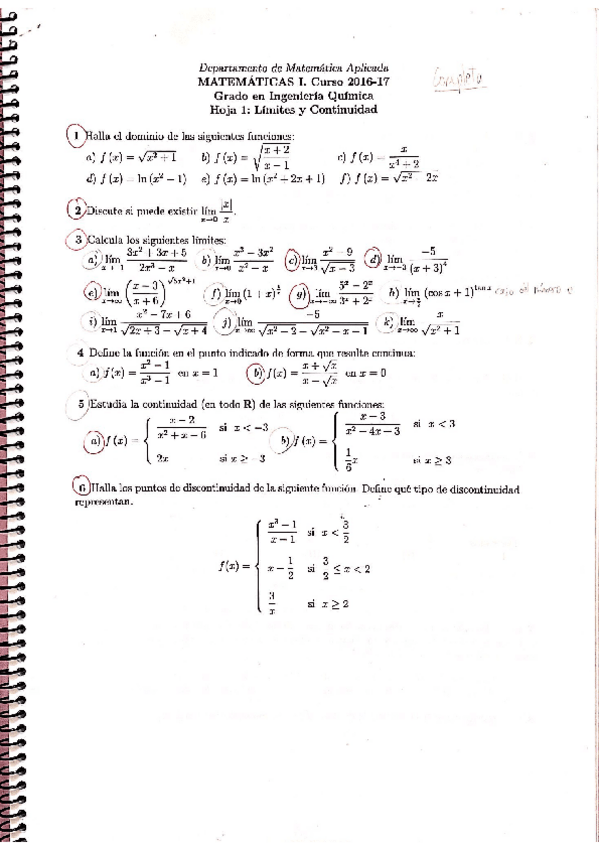 Departamento de Matemática Aplicada
MATEMÁTICAS I. Curso 2016-17
Completo
Grado en Ingeniería Química
Hoja 1: Límites y Continuidad
1 Halla el dominio de las siguientes funciones:
a) f(x) = √(x² + 1) b) f(x) = √((x + 2)/(x − 1)) c) f(x) = x/(x⁴ + 2)
d) f(x) = ln(x² − 1) e) f(x) = ln(x² + 2x + 1) f) f(x) = √(x² 2x
2 Discute si puede existir lím x→0 |x|/x.
3 Calcula los siguientes límites:
a) lím (3x² + 3x + 5)/(2x³ − x) b) lím x→0 (x³ − 3x²)/(x² − x) c) lím x→3 (x² − 9)/√(x − 3) d) lím x→−3 −5/(x + 3)⁴
e) lím x→∞ ((x − 3)/(x + 6)) f) lím x→0 (1 + x) g) lím (5ˣ − 2ˣ)/(3ˣ + 2ˣ) h) lím (cos x + 1)^(tan x) caso del número e
i) lím x→1 (x² − 7x + 6)/(√(2x + 3) − √(x + 4)) j) lím x→∞ −5/(√(x² − 2) − √(x² − x − 1)) k) lím x/√(x² + 1)
4 Define la función en el punto indicado de forma que resulte continua:
a) f(x) = (x² − 1)/(x³ − 1) en x = 1 b) f(x) = (x + √x)/(x − √x) en x = 0
5 Estudia la continuidad (en todo R) de las siguientes funciones:
a) f(x) = { (x − 2)/(x² + x − 6) si x < −3 b) f(x) = { (x − 3)/(x² − 4x − 3) si x < 3
2x si x ≥ −3 1/6 x si x ≥ 3
6 Halla los puntos de discontinuidad de la siguiente función. Define qué tipo de discontinuidad
representan.
f(x) = { (x³ − 1)/(x − 1) si x < 3/2
x − 1/2 si 3/2 ≤ x < 2
3/x si x ≥ 2